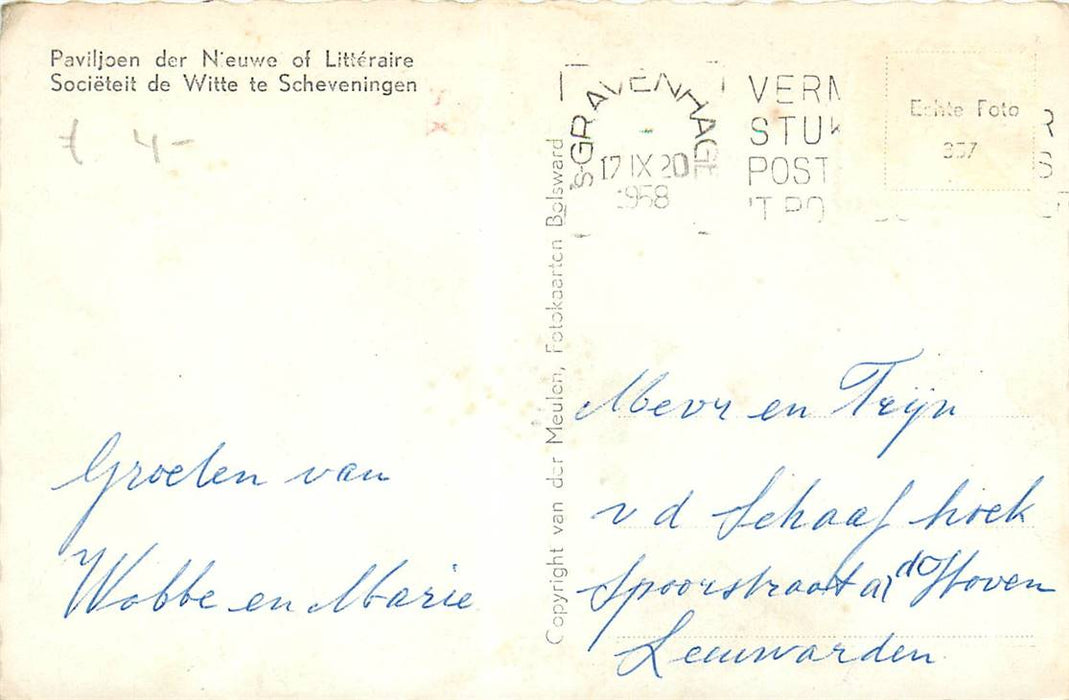 Paviljoen der Nieuwe of Littéraire
Sociëteit de Witte te Scheveningen
4-
Groeten van
Wobbe en Marie
Copyright van der Meulen, Fotokaarten Bolsward
'S-GRAVENHAGE
17 IX 20
1958
VERM
STUK
POST
'T PO
Echte Foto
357
Mevr en Trijn
v d Schaaf hoek
Spoorstraat a/d Hoven
Leeuwarden